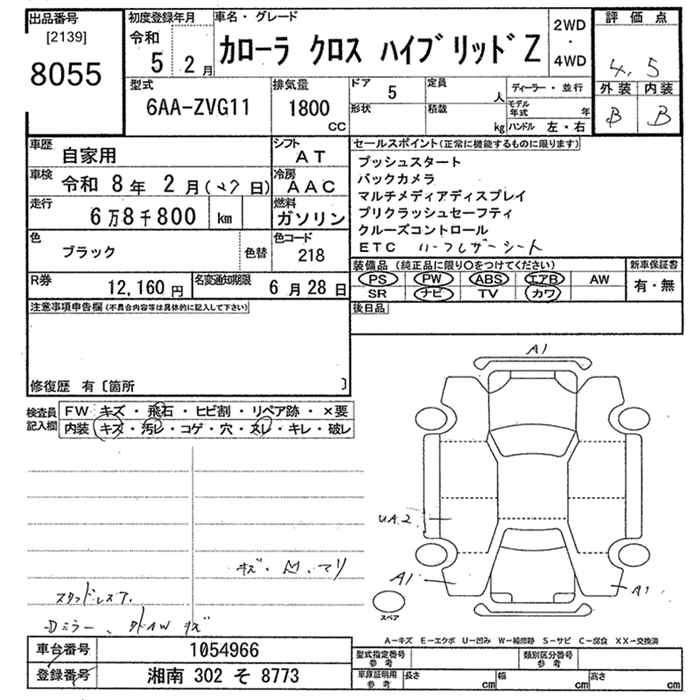 出品番号
[2139]
8055
初度登録年月
令和
5 2月
車名・グレード
カローラ クロス ハイブリッド Z
2WD
・
4WD
評価点
4.5
外装 内装
B B
型式
6AA-ZVG11
排気量
1800
CC
ドア 5
形状
定員 人
積載 kg
ディーラー・並行
モデル年式 年
ハンドル 左・右
車歴 自家用
シフト AT
車検 令和 8年 2月(27日)
冷房 AAC
走行 6万8千800 km
燃料 ガソリン
色 ブラック 色替
色コード 218
R券 12,160円
名変通知期限 6月28日
セールスポイント(正常に機能するものに限ります)
プッシュスタート
バックカメラ
マルチメディアディスプレイ
プリクラッシュセーフティ
クルーズコントロール
ETC ハーフレザーシート
装備品 (純正品に限り○をつけてください)
新車保証書
PS PW ABS エアB AW
有・無
SR ナビ TV カワ
後日品
注意事項申告欄(不具合内容等は具体的に記入して下さい)
修復歴 有〔箇所 〕
検査員記入欄
FW キズ・飛石・ヒビ割・リペア跡・×要
内装 キズ・汚レ・コゲ・穴・スレ・キレ・破レ
A1
UA2
A1
A1
スペア
キズ・凹・マリ
スタッドレスT.
Dミラー、タトAW キズ
A-キズ E-エクボ U-凹み W-補修跡 S-サビ C-腐食 XX-交換済
車台番号 1054966
登録番号 湘南 302 そ 8773
型式指定番号 参考
類別区分番号 参考
車庫証明用 参考
長さ cm
幅 cm
高さ cm